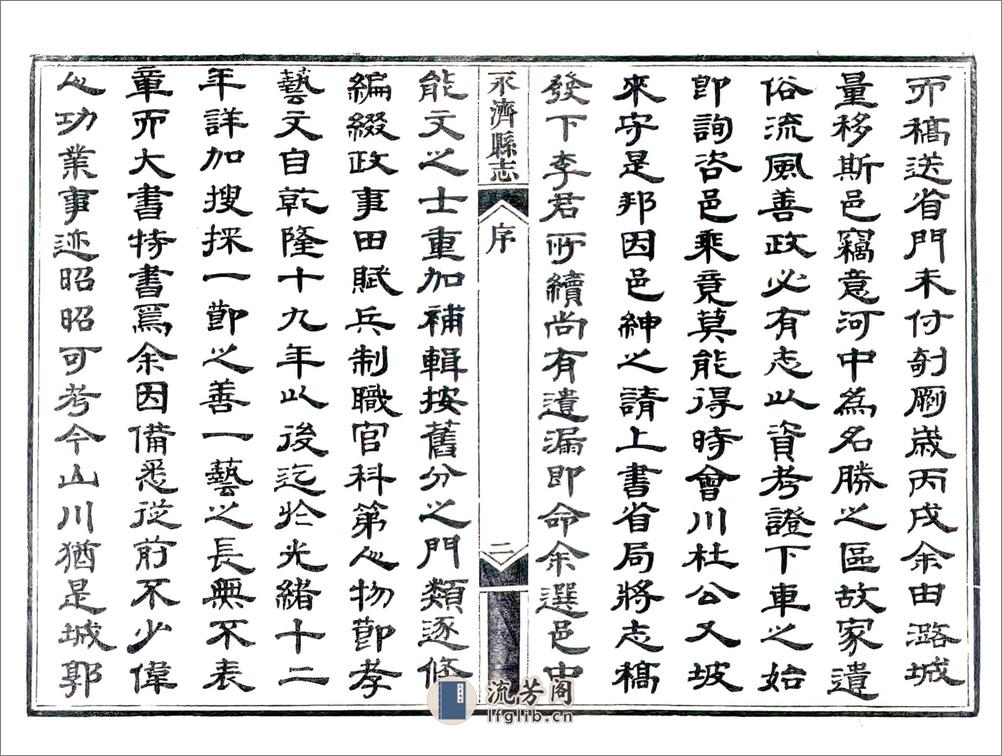 而稿送省門未付剞劂歲丙戌余由潞城
量移斯邑竊意河中爲名勝之區故家遺
俗流風善政必有志以資考證下車之始
即詢咨邑乘竟莫能得時會川杜公又坡
來守是邦因邑紳之請上書省局將志稿
發下李君所續尚有遺漏即命余選邑中
永濟縣志
序
二
能文之士重加補輯按舊分之門類逐條
編綴政事田賦兵制職官科第人物節孝
藝文自乾隆十九年以後迄於光緒十二
年詳加搜採一節之善一藝之長無不表
章而大書特書焉余因備悉從前不少偉
人功業事迹昭昭可考今山川猶是城郭
流芳阁
lfglib.cn